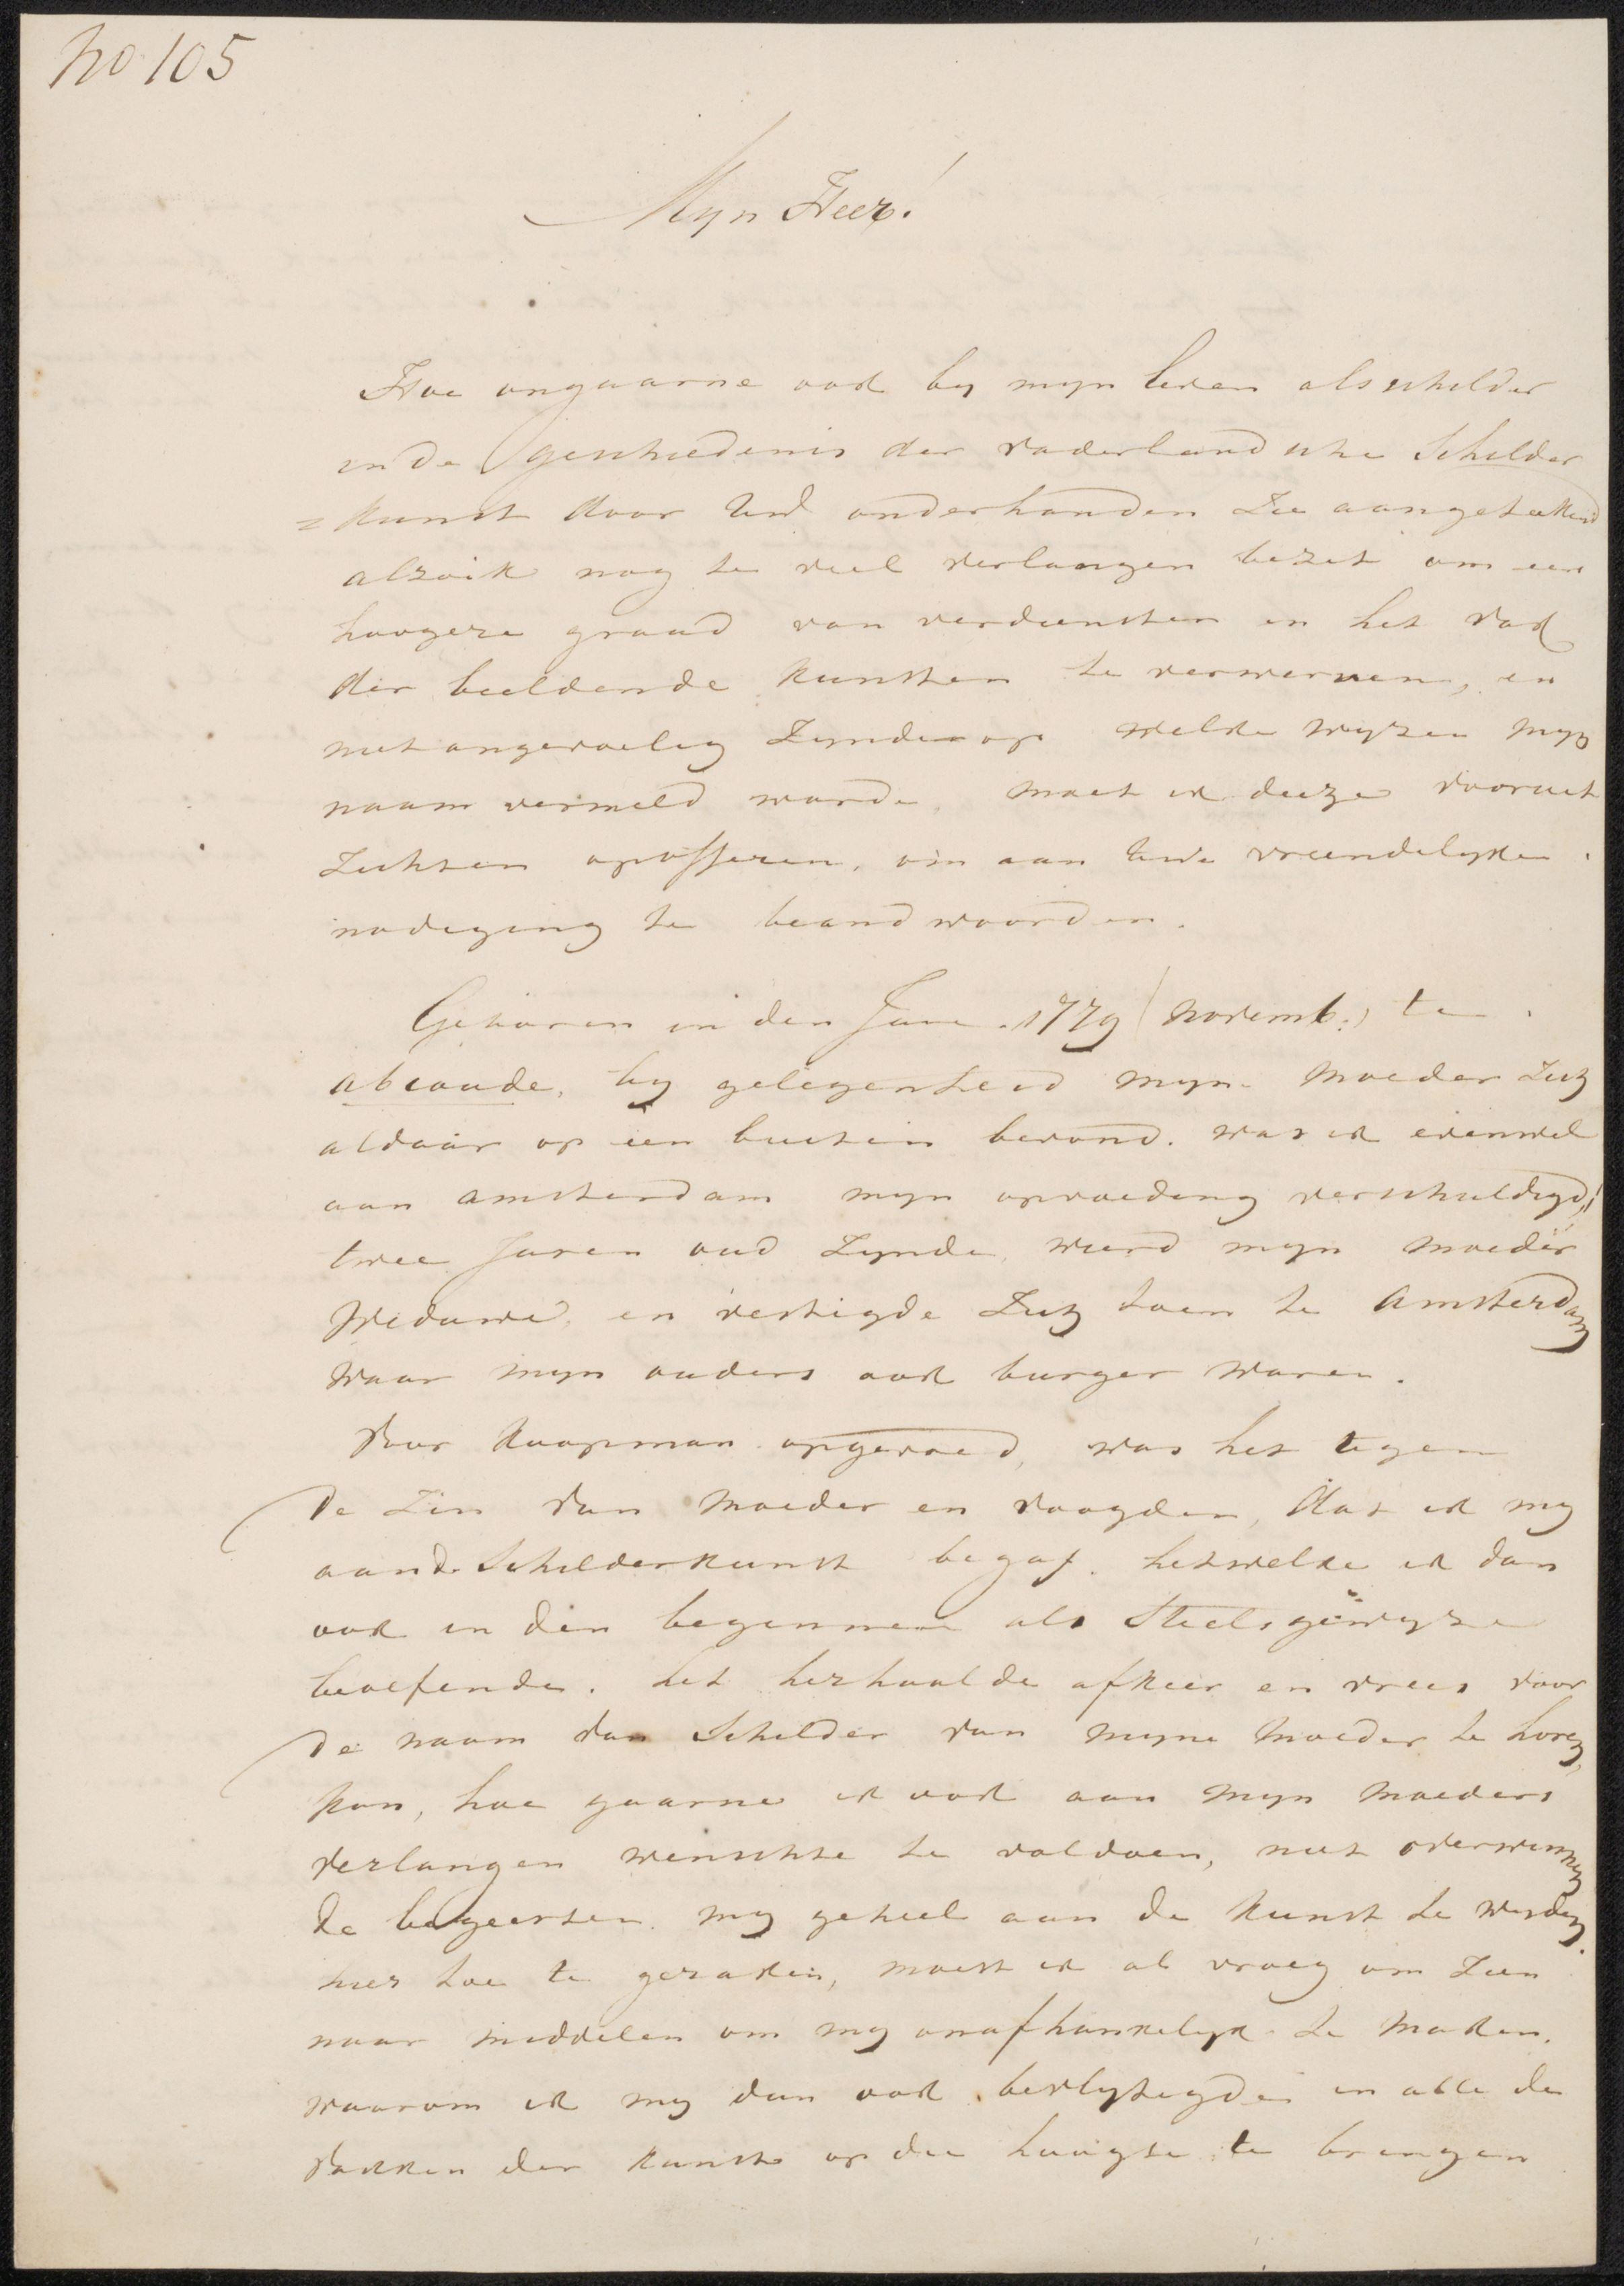 No 105
Myn Heer!
Hoe ongaarne ook by myn leven als schilder
in de geschiedenis der vaderlandsche Schilder
= kunst door Uwd onderhanden zie aangetekend
alzoik nog te veel verlangen bezit om een
hoogere graad van verdiensten in het vak
der beeldende kunsten te verwerven, en
niet ongevoelig zynde op welke wyzen myn
naam vermeld worde. moet ik deeze vooruit
zichten opofferen, om aan Uwe vriendelyke
nodiging te beandwoorden.
Geboren in den Jare 1779 (novemb:) te
abcoude, by gelegenheid myn moeder zich
aldaar op een buiten bevond. was ik evenwel
aan amsterdam myn opvoeding verschuldigd,
twee Jaren oud zynde, wierd myn moeder
Weduwe, en vestigde zich toen te Amsterdam
waar myn ouders ook burger waren.
Voor koopman opgevoed, was het tegen
de zin van moeder en voogden, dat ik my
aand Schilderkunst begaf. hetwelke ik dan
ook in den beginnen als Steelsgewyze
beoefende. het herhaalde afkeer en vrees voor
de naam van Schilder van myne moeder te horen,
kon, hoe gaarne ik ook aan myn moeders
verlangen wenschte te voldoen, niet overwinnen
de begeerten my geheel aan de kunst te wyden.
hier toe te geraken, moest ik al vroeg om zien
naar middelen om my onafhankelyk te maken.
waarom ik my dan ook bevlytigde in alle de
vakken der kunst op die hoogte te brengen